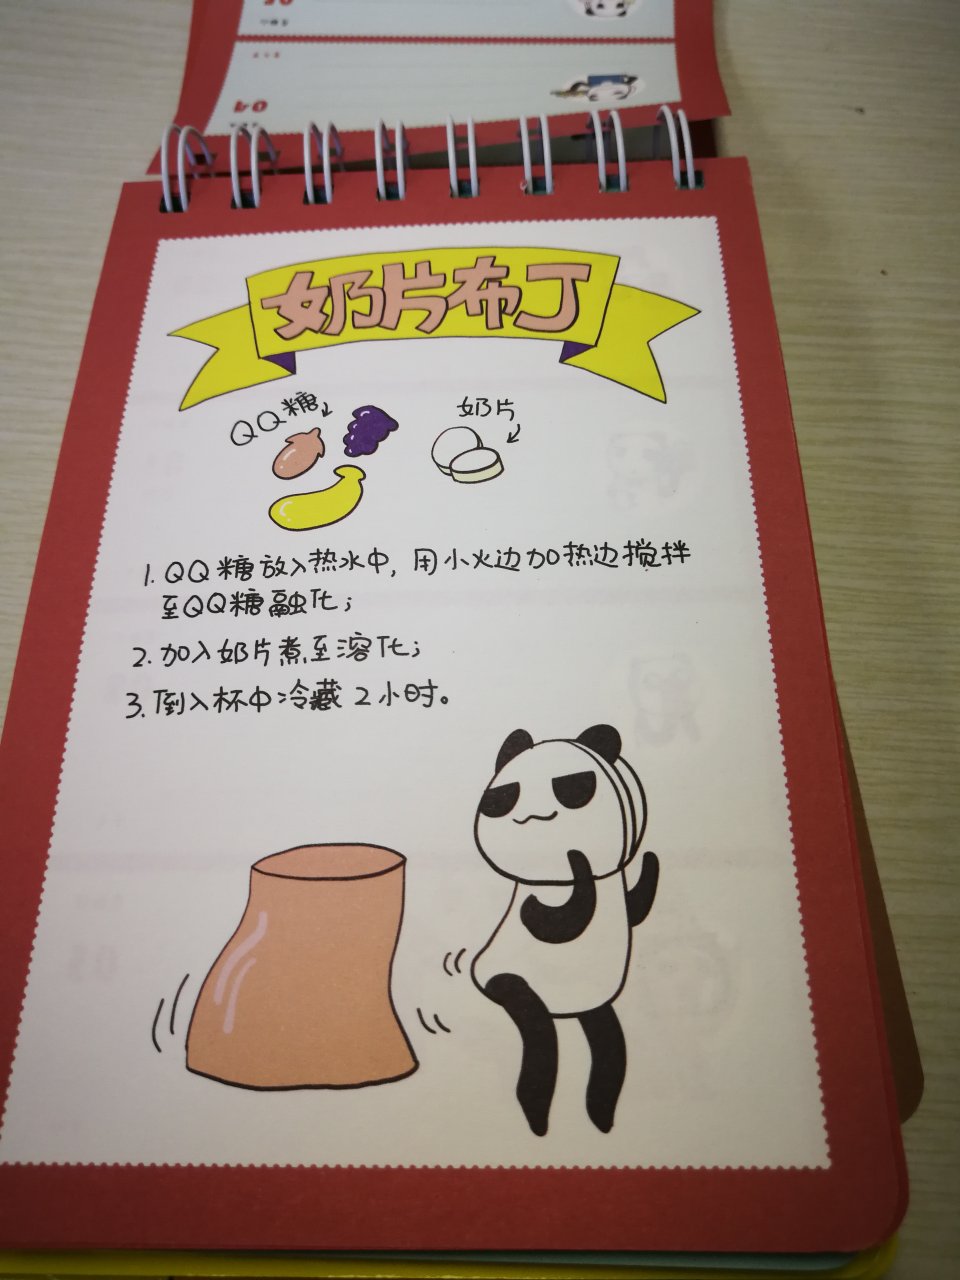 04
奶片布丁
QQ糖
奶片
1. QQ糖放入热水中，用小火边加热边搅拌
至QQ糖融化；
2. 加入奶片煮至溶化；
3. 倒入杯中冷藏2小时。